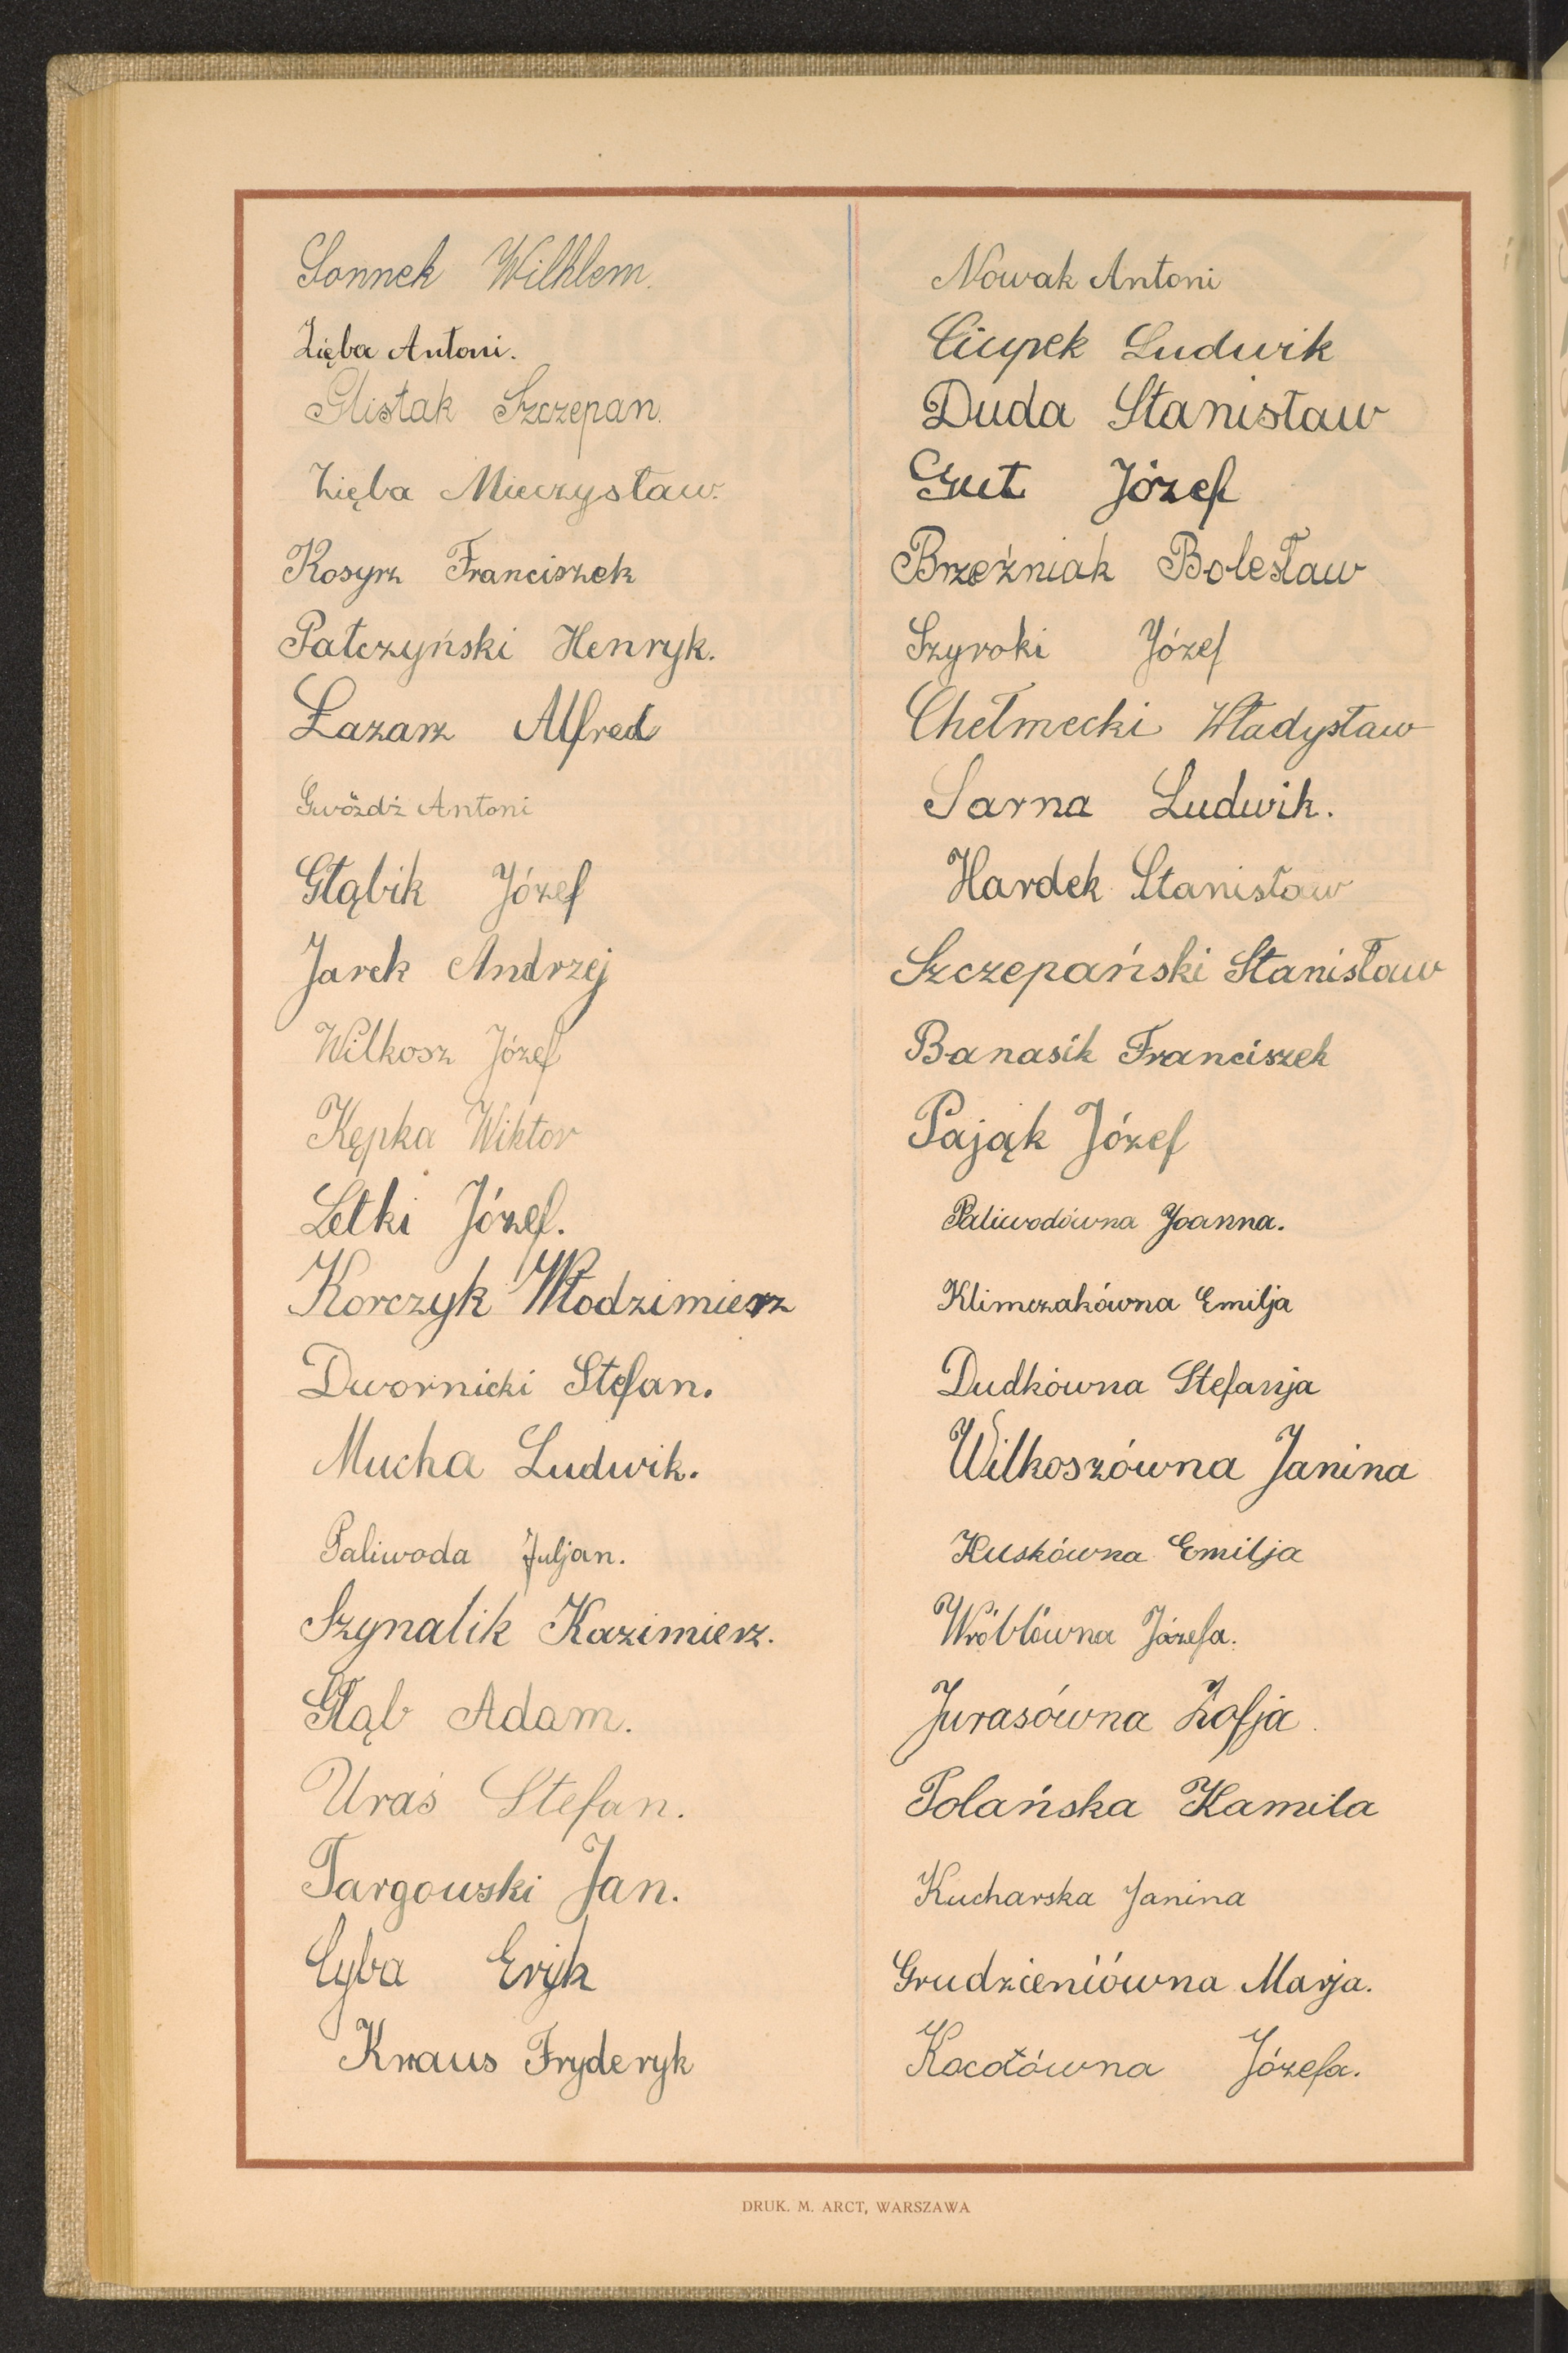 Sonnek Wilhlem.
Zięba Antoni.
Glistak Szczepan.
Zięba Mieczysław.
Kosyrz Franciszek
Pałczyński Henryk.
Łazarz Alfred
Gwóźdź Antoni
Głąbik Józef
Jarek Andrzej
Wilkosz Józef
Kępka Wiktor
Letki Józef.
Korczyk Włodzimierz
Dwornicki Stefan.
Mucha Ludwik.
Paliwoda Juljan.
Szynalik Kazimierz.
Głąb Adam.
Uraś Stefan.
Targowski Jan.
Cyba Eryk
Kraus Fryderyk
Nowak Antoni
Ciupek Ludwik
Duda Stanisław
Gut Józef
Brzeźniak Bolesław
Szyroki Józef
Chełmecki Władysław
Sarna Ludwik.
Hardek Stanisław
Szczepański Stanisław
Banasik Franciszek
Pająk Józef
Paliwodówna Joanna.
Klimczakówna Emilja
Dudkówna Stefanja
Wilkoszówna Janina
Kuskówna Emilja
Wróblówna Józefa.
Jurasówna Zofja
Polańska Kamila
Kucharska Janina
Grudzieniówna Marja.
Kocotówna Józefa.
DRUK. M. ARCT, WARSZAWA